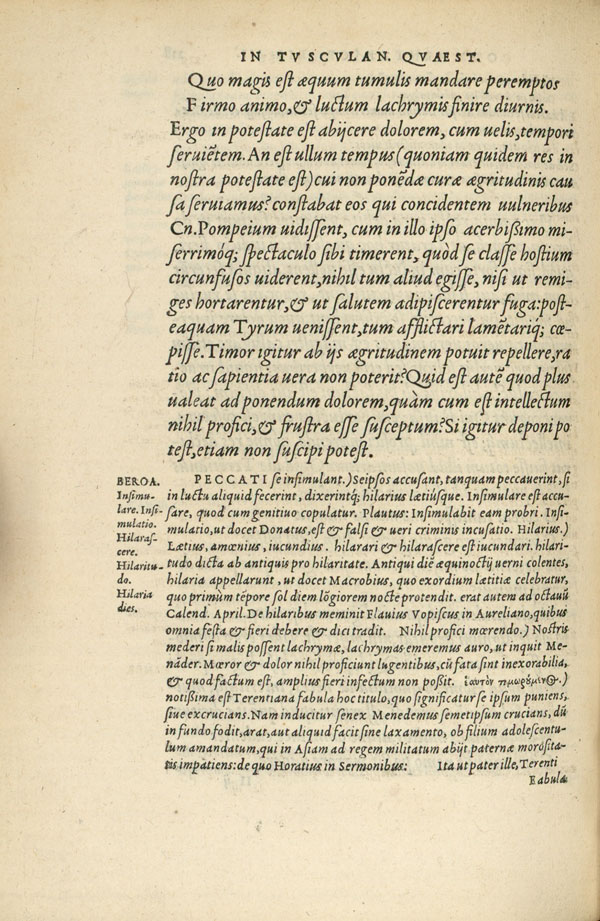 IN TVSCVLAN. QVAEST.
Quo magis est æquum tumulis mandare peremptos
Firmo animo, & luctum lachrymis finire diurnis.
Ergo in potestate est abijcere dolorem, cum uelis, tempori
seruiẽtem. An est ullum tempus (quoniam quidem res in
nostra potestate est) cui non ponẽdæ curæ ægritudinis cau
sa seruiamus? constabat eos qui concidentem uulneribus
Cn. Pompeium uidissent, cum in illo ipso acerbißimo mi-
serrimóq; spectaculo sibi timerent, quòd se classe hostium
circunfusos uiderent, nihil tum aliud egisse, nisi ut remi-
ges hortarentur, & ut salutem adipiscerentur fuga: post-
eaquam Tyrum uenissent, tum afflictari lamẽtariq́; cœ-
pisse. Timor igitur ab ijs ægritudinem potuit repellere, ra
tio ac sapientia uera non poterit? Quid est autẽ quod plus
ualeat ad ponendum dolorem, quàm cum est intellectum
nihil profici, & frustra esse susceptum? Si igitur deponi po
test, etiam non suscipi potest.
BEROA.
Insimu-
lare. Insi-
mulatio.
Hilaras-
cere.
Hilaritu-
do.
Hilaria
dies.
PECCATI se insimulant.) Seipsos accusant, tanquam peccauerint, si
in luctu aliquid fecerint, dixerintq́; hilarius lætiúsque. Insimulare est accu-
sare, quod cum genitiuo copulatur. Plautus: Insimulabit eam probri. Insi-
mulatio, ut docet Donatus, est & falsi & ueri criminis incusatio. Hilarius.)
Lætius, amœnius, iucundius. hilarari & hilarascere est iucundari. hilari-
tudo dicta ab antiquis pro hilaritate. Antiqui diẽ æquinoctij uerni colentes,
hilaria appellarunt, ut docet Macrobius, quo exordium lætitiæ celebratur,
quo primùm tẽpore sol diem lõgiorem nocte protendit. erat autem ad octauũ
Calend. April. De hilaribus meminit Flauius Vopiscus in Aureliano, quibus
omnia festa & fieri debere & dici tradit. Nihil profici mœrendo.) Nostris
mederi si malis possent lachrymæ, lachrymas emeremus auro, ut inquit Me-
nãder. Mœror & dolor nihil proficiunt lugentibus, cũ fata sint inexorabilia,
& quod factum est, amplius fieri infectum non poßit. ἑαυτὸν τιμωρούμενος.)
notißima est Terentiana fabula hoc titulo, quo significatur se ipsum puniens,
siue excrucians. Nam inducitur senex Menedemus semetipsum crucians, dũ
in fundo fodit, arat, aut aliquid facit sine laxamento, ob filium adolescentu-
lum amandatum, qui in Asiam ad regem militatum abijt paternæ morósita-
tis impatiens: de quo Horatius in Sermonibus: Ita ut pater ille, Terenti
Fabula